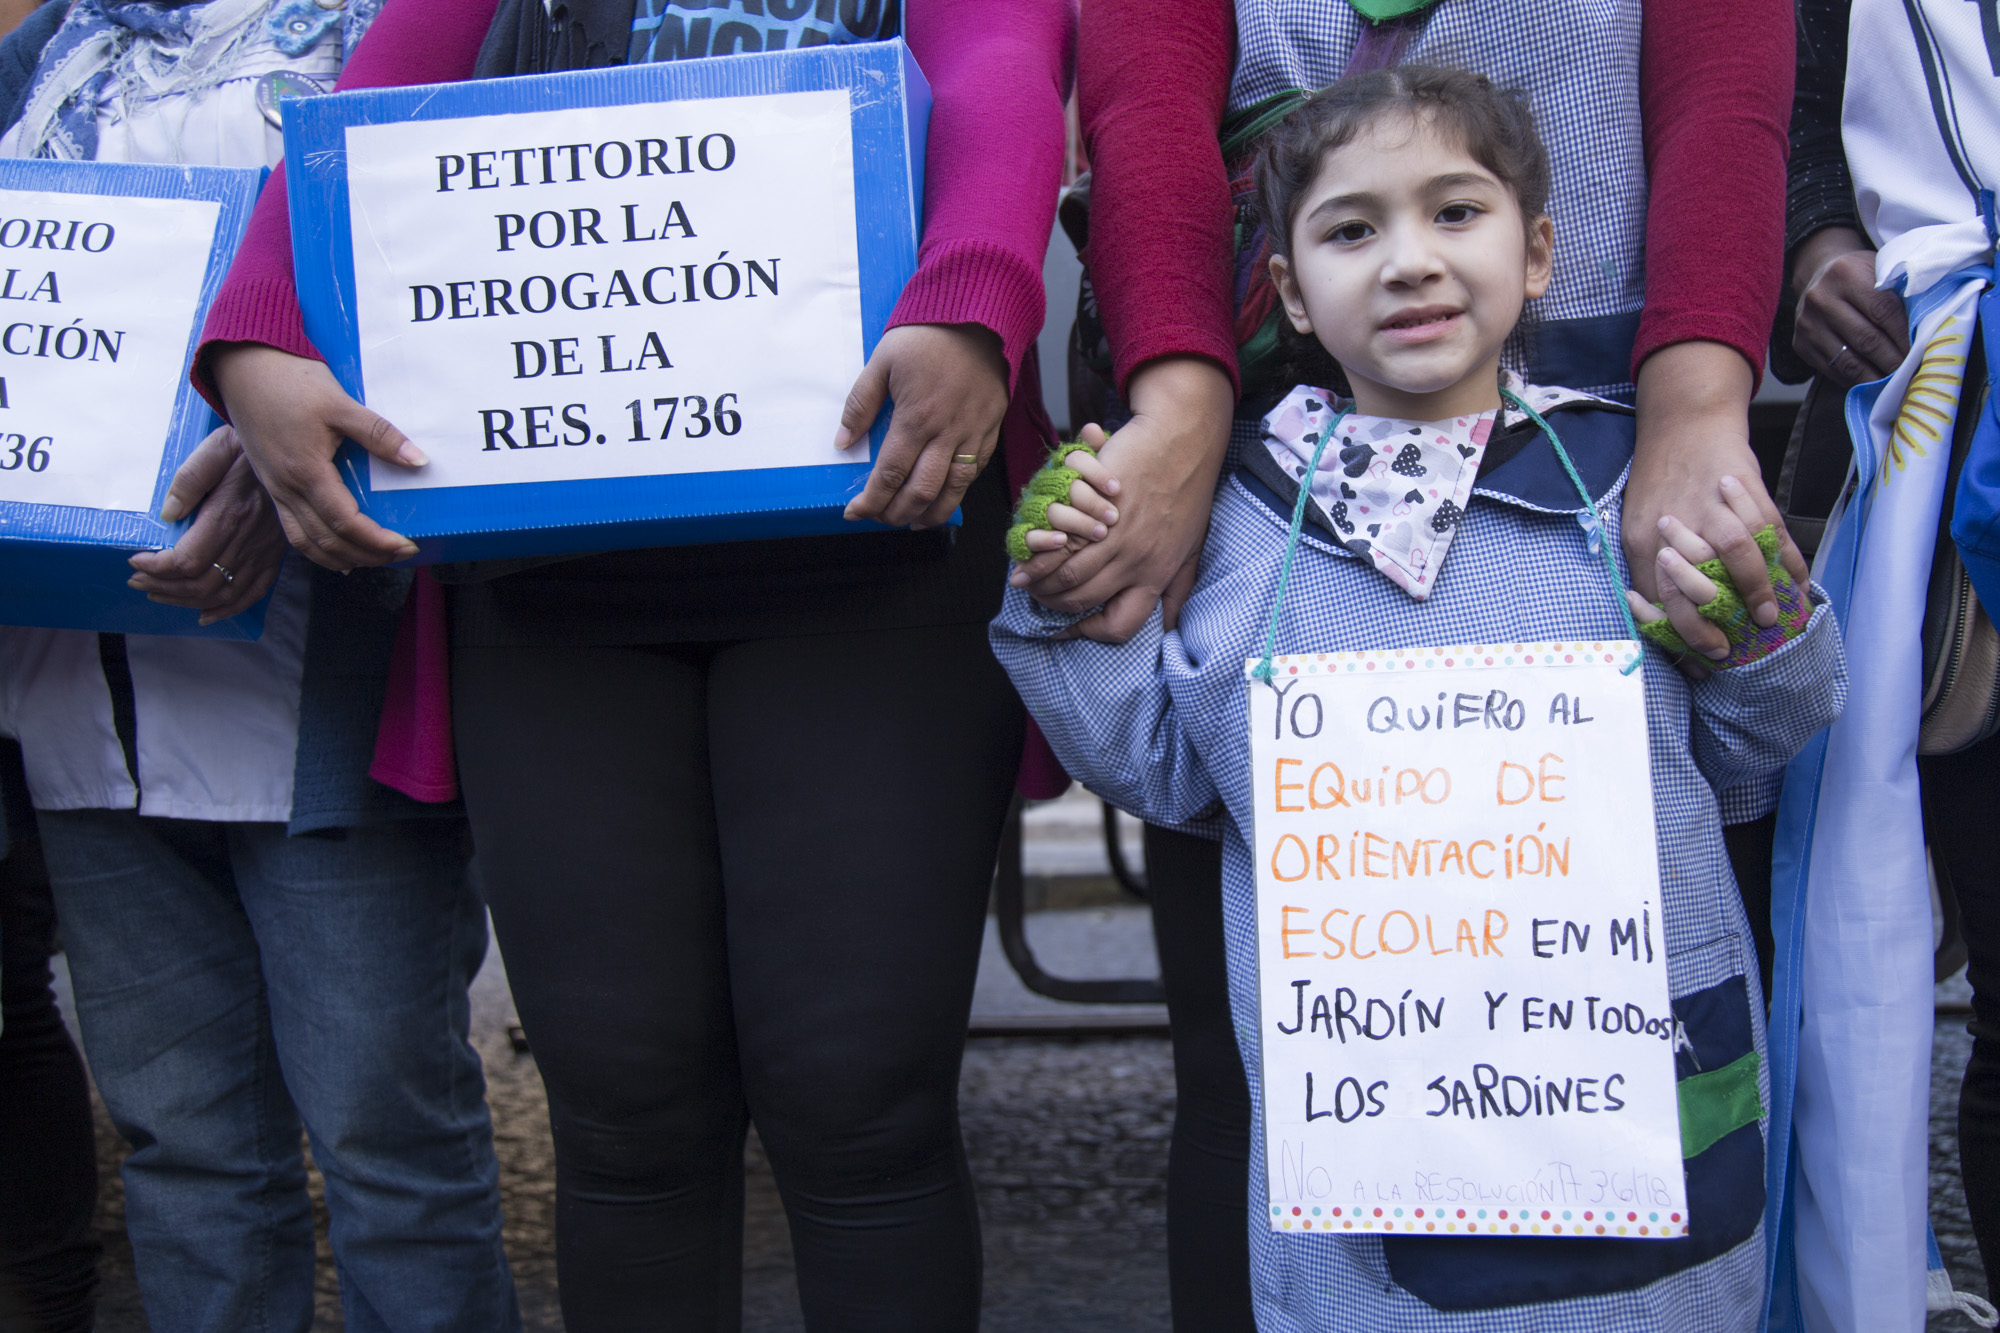 ORIO
LA
CIÓN
A
736
PETITORIO
POR LA
DEROGACIÓN
DE LA
RES. 1736
YO QUIERO AL
EQUIPO DE
ORIENTACIÓN
ESCOLAR EN MI
JARDÍN Y EN TODOS
LOS JARDINES
NO A LA RESOLUCIÓN 1736/18